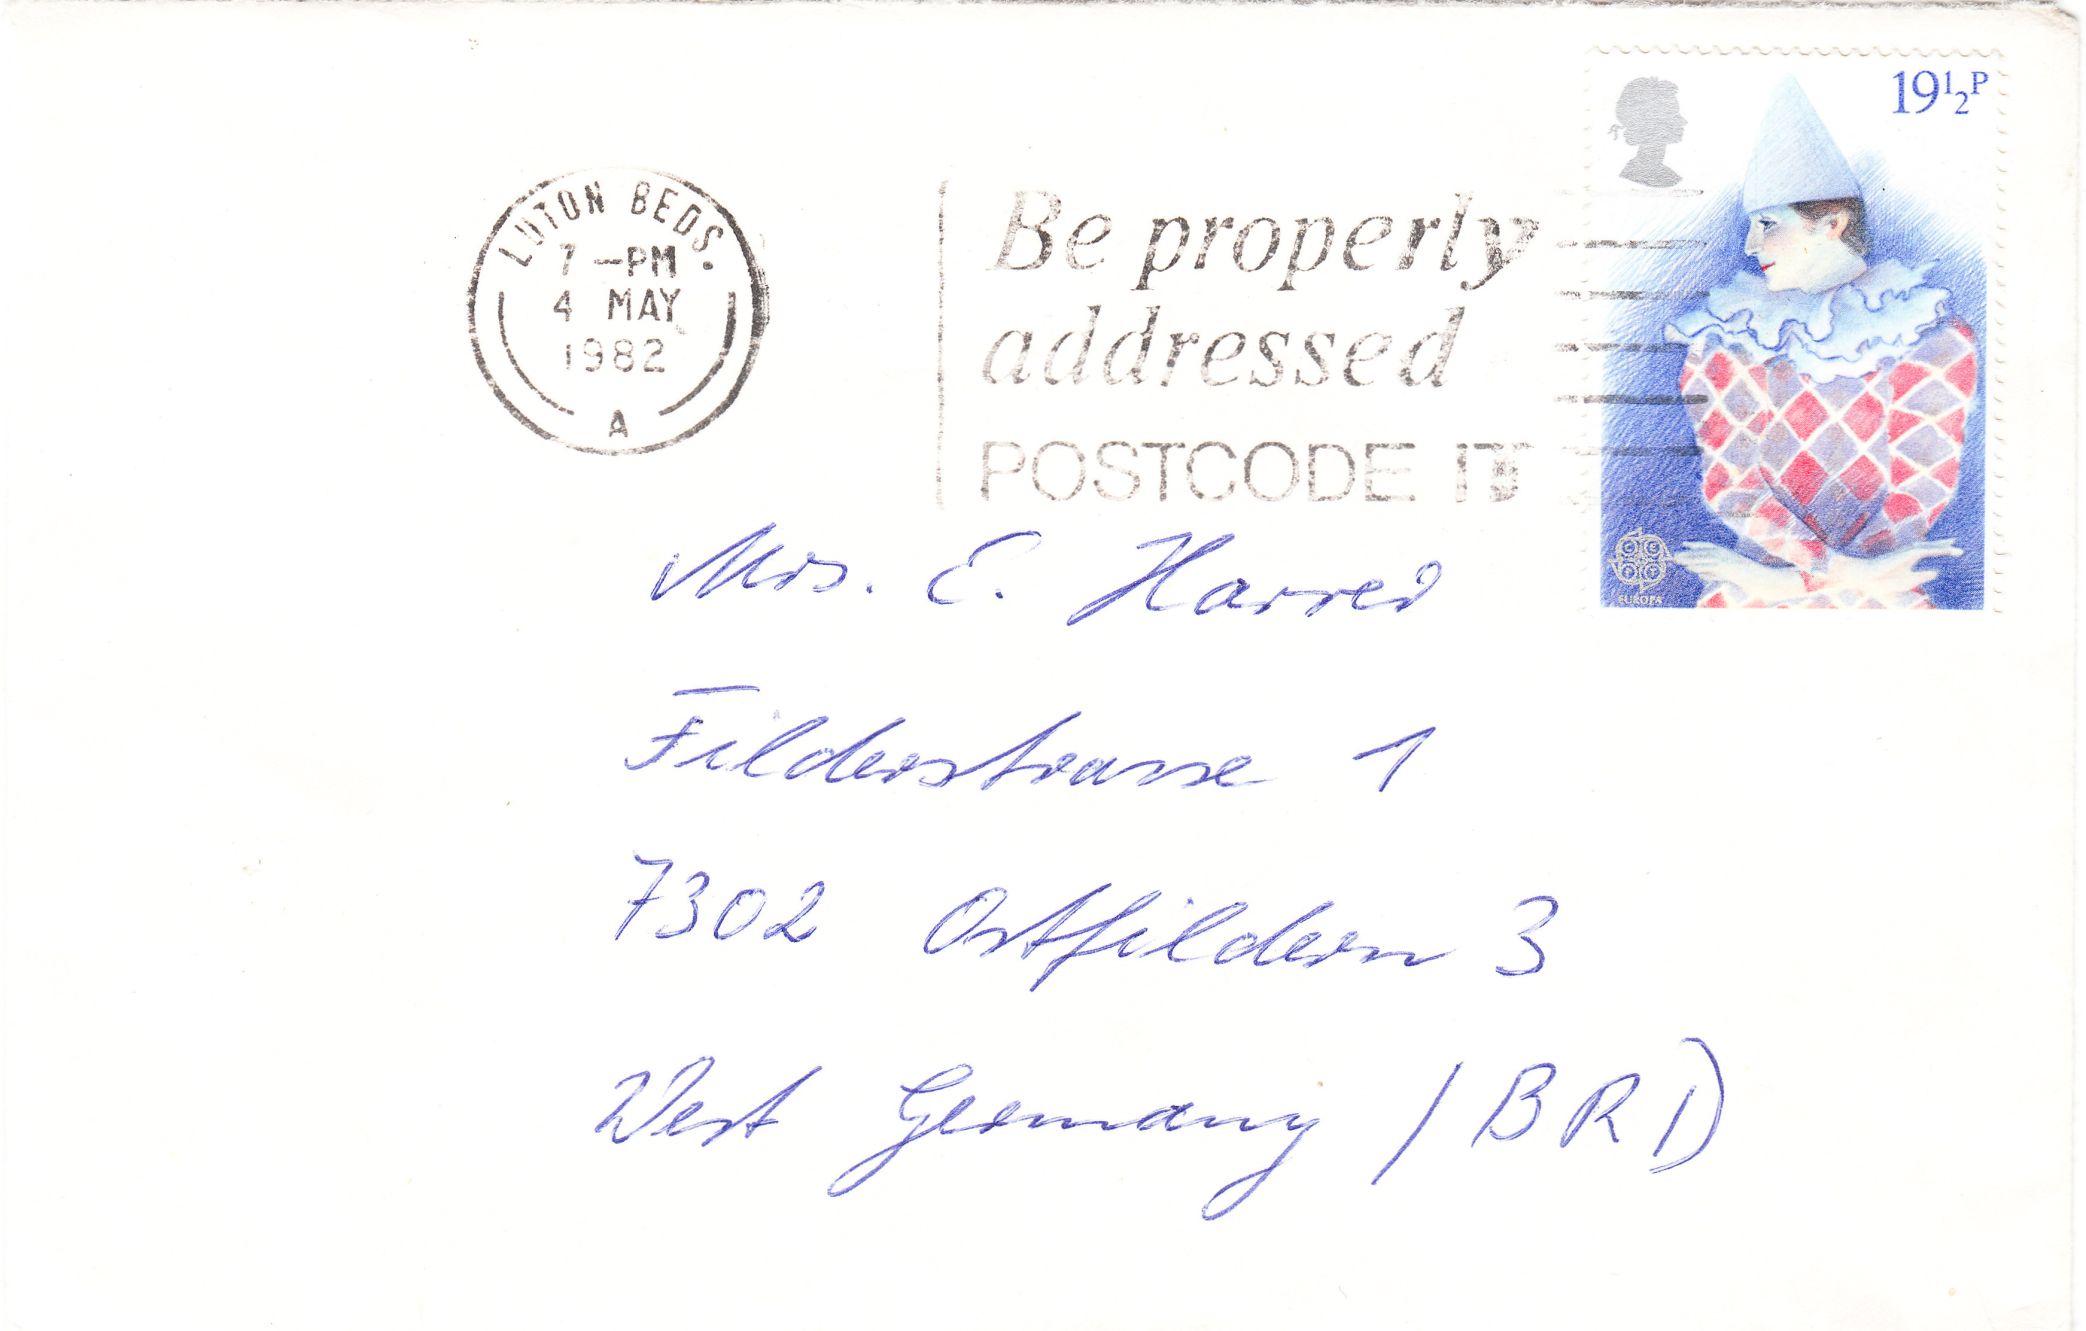 LUTON BEDS.
7 -PM
4 MAY
1982
A
Be properly
addressed
POSTCODE IT
19½P
CEPT
EUROPA
Mrs. E. Harrer
Filderstrasse 1
7302 Ostfildern 3
West Germany (BRD)